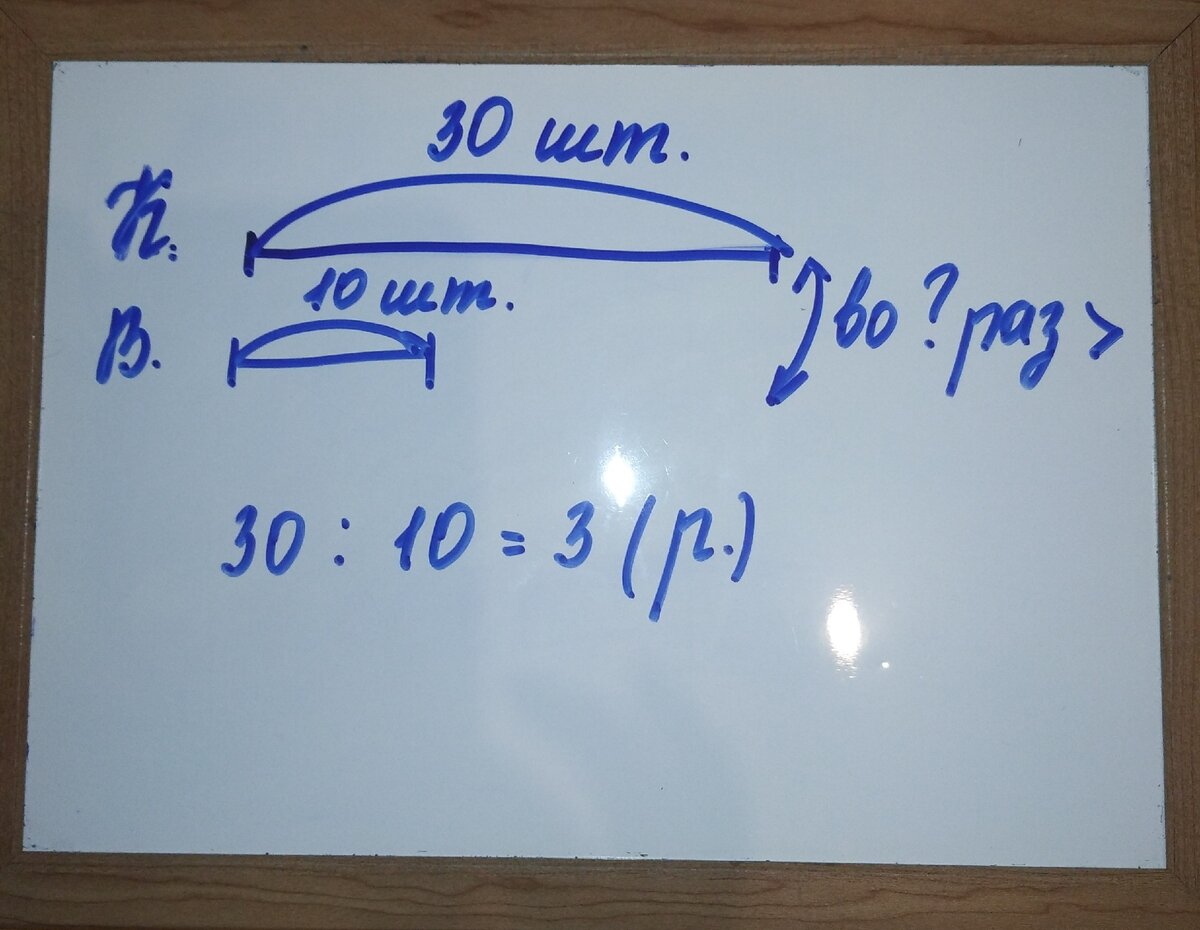 30 шт.
К.
10 шт.
В.
во ? раз >
30 : 10 = 3 (р.)